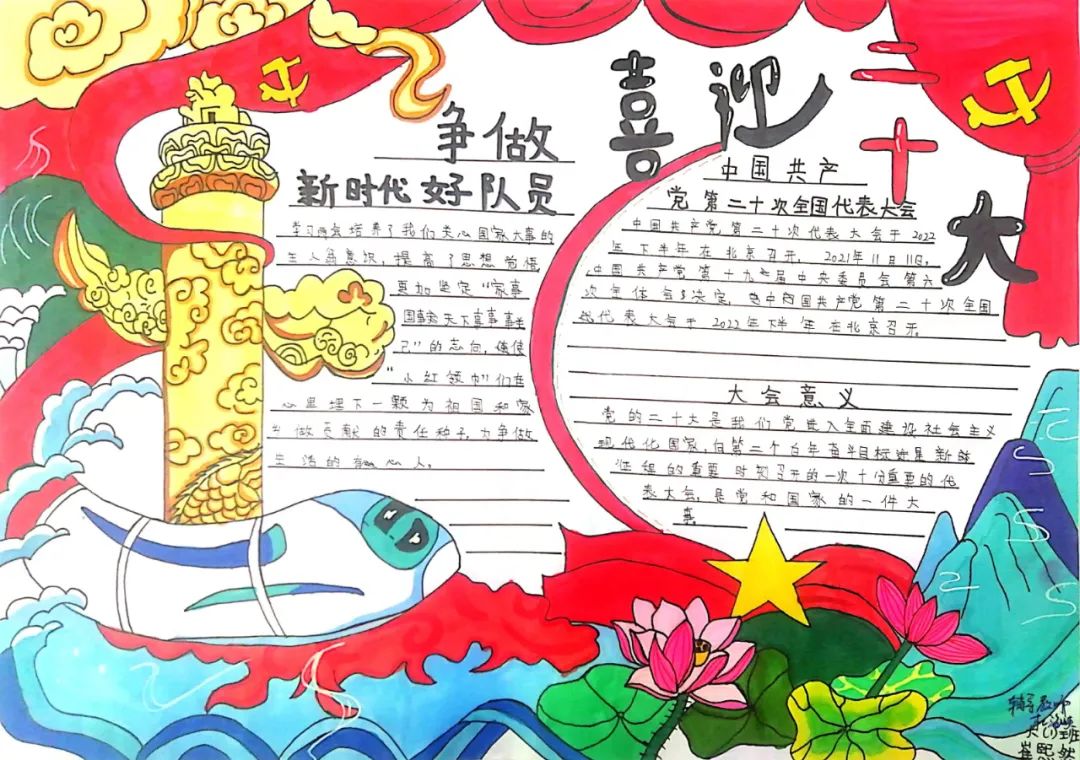 喜迎二十大
争做
新时代好队员
学习 培养了我们关心国家大事的
主人翁意识，提高了思想觉悟，
更加坚定“家事
国事天下事事事关
己”的志向，使
“小红领巾”们在
心里埋下一颗为祖国和家
做贡献的责任种子，为争做
生活的有心人。
中国共产
党第二十次全国代表大会
中国共产党第二十次代表大会于2022
年下半年在北京召开，2021年11月11日，
中国共产党第十九届中央委员会第六
次全体会决定，中国共产党第二十次全国
代表大会于2022年下半年在北京召开。
大会意义
党的二十大是我们党进入全面建设社会主义
现代化国家，向第二个百年奋斗目标进军新
征程的重要时刻召开的一次十分重要的代
表大会，是党和国家的一件大
事
辅导教师
班
崔熙然